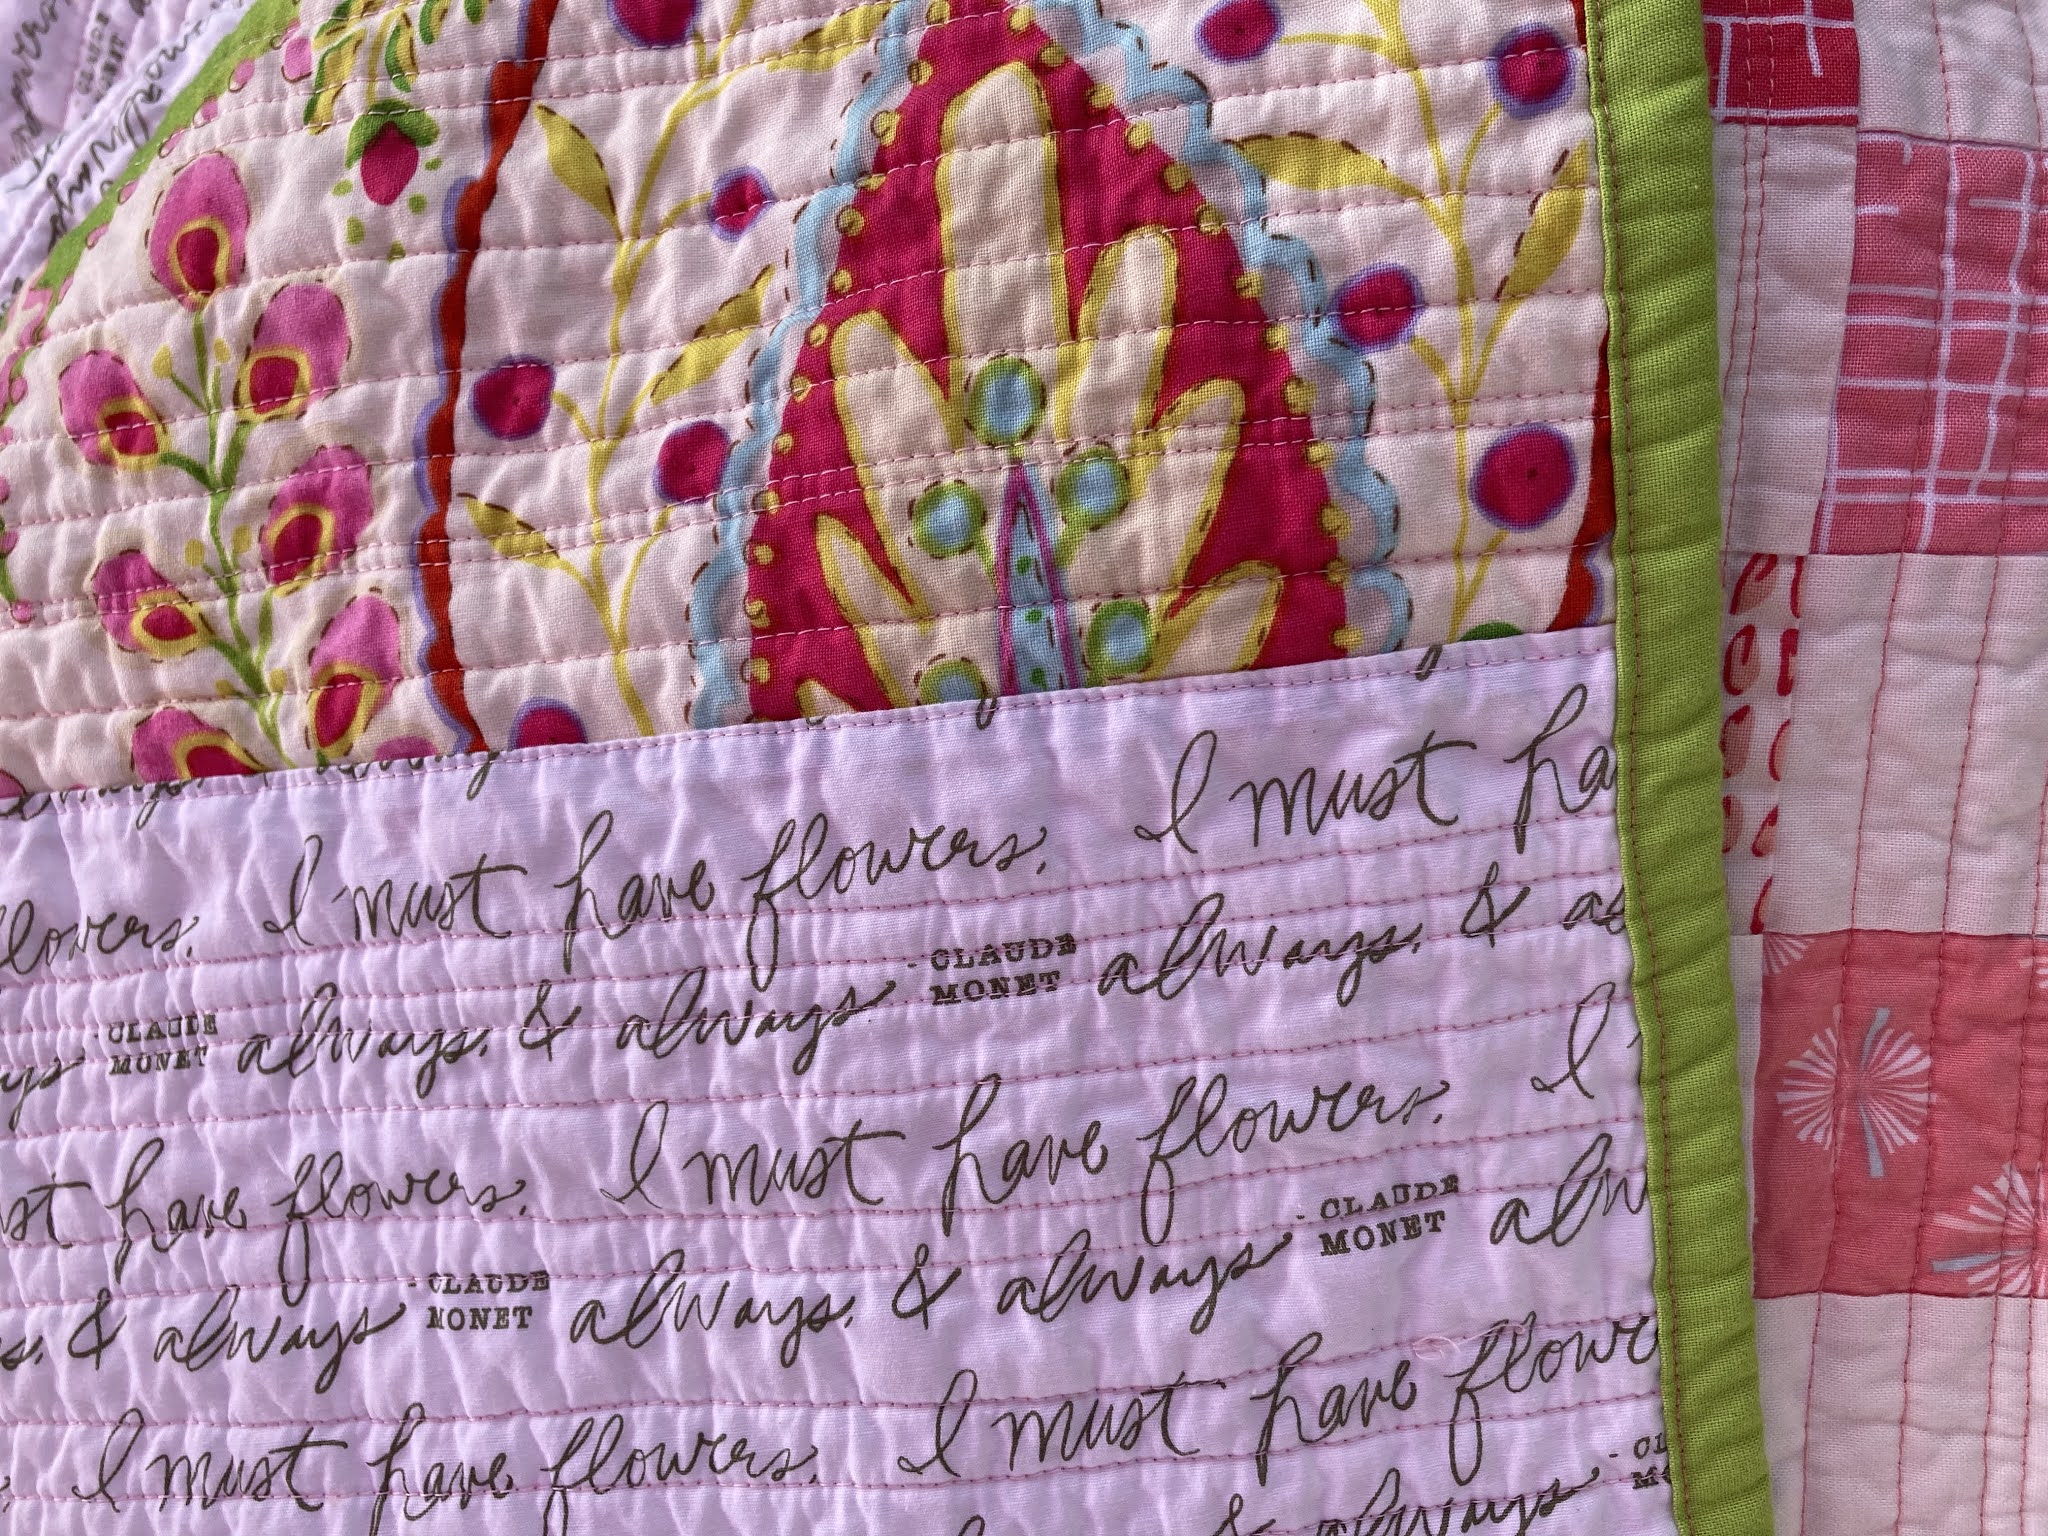 always
I must have flowers. I must ha
flowers. always. & always - CLAUDE
MONET always. & al
- CLAUDE
MONET
I must have flowers. I must have flowers. I
always. & always - CLAUDE
MONET always. & always - CLAUDE
MONET alw
I must have flowers. I must have flowe
& always - CL
MO